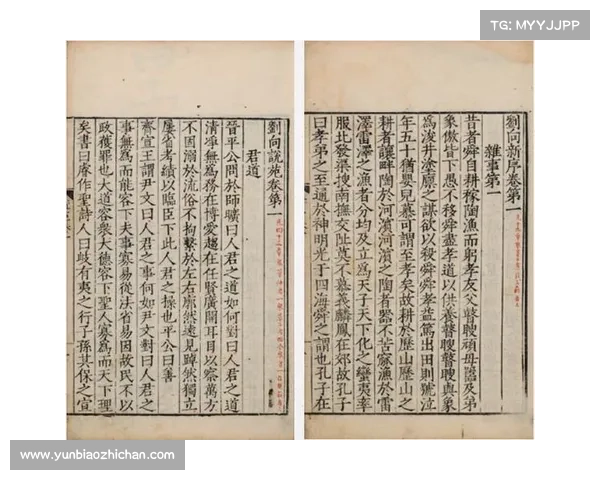 TG: MYYJJPP
劉向新序卷第一
雜事第一
昔者舜自耕稼陶漁而躬孝友父瞽瞍頑母嚚及弟
象傲皆下愚不移舜盡孝道以供養瞽瞍瞽瞍與象
為浚井塗廩之謀欲以殺舜舜孝益篤出田則號泣
年五十猶嬰兒慕可謂至孝矣故耕於歷山歷山之
耕者讓畔陶於河濱河濱之陶者器不苦窳漁於雷
澤雷澤之漁者分均及立為天子天下化之蠻夷率
服北發渠搜南撫交阯莫不慕義麟鳳在郊故孔子
曰孝弟之至通於神明光于四海舜之謂也孔子在
劉向說苑卷第一
君道
晉平公問於師曠曰人君之道如何對曰人君之道
清凈無為務在博愛趨在任賢廣開耳目以察萬方
不固溺於流俗不拘繫於左右廓然遠見踔然獨立
屢省考績以臨臣下此人君之操也平公曰善
齊宣王謂尹文曰人君之事何如尹文對曰人君之
事無為而能容下夫事寡易從法省易因故民不以
政獲罪也大道容眾大德容下聖人寡為而天下理
矣書曰睿作聖詩人曰岐有夷之行子孫其保之宣
www.yunbiaozhichan.com